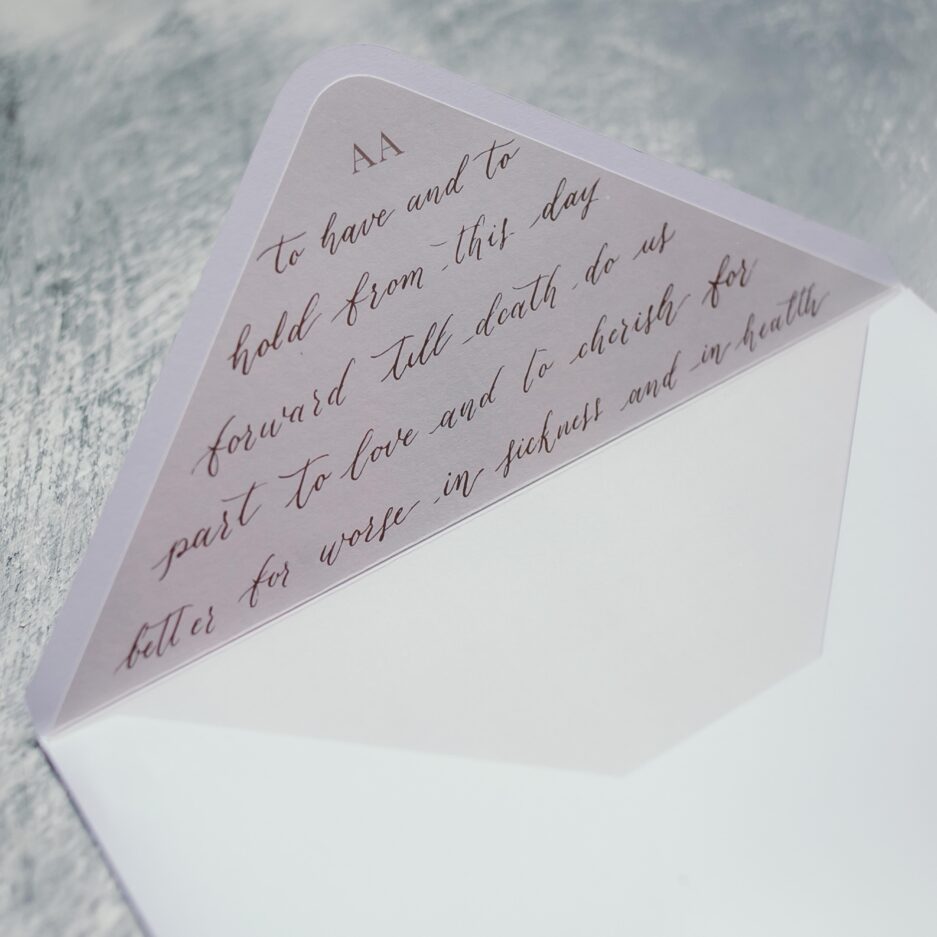 AA
to have and to
hold from this day
forward till death do us
part to love and to cherish for
better for worse in sickness and in health